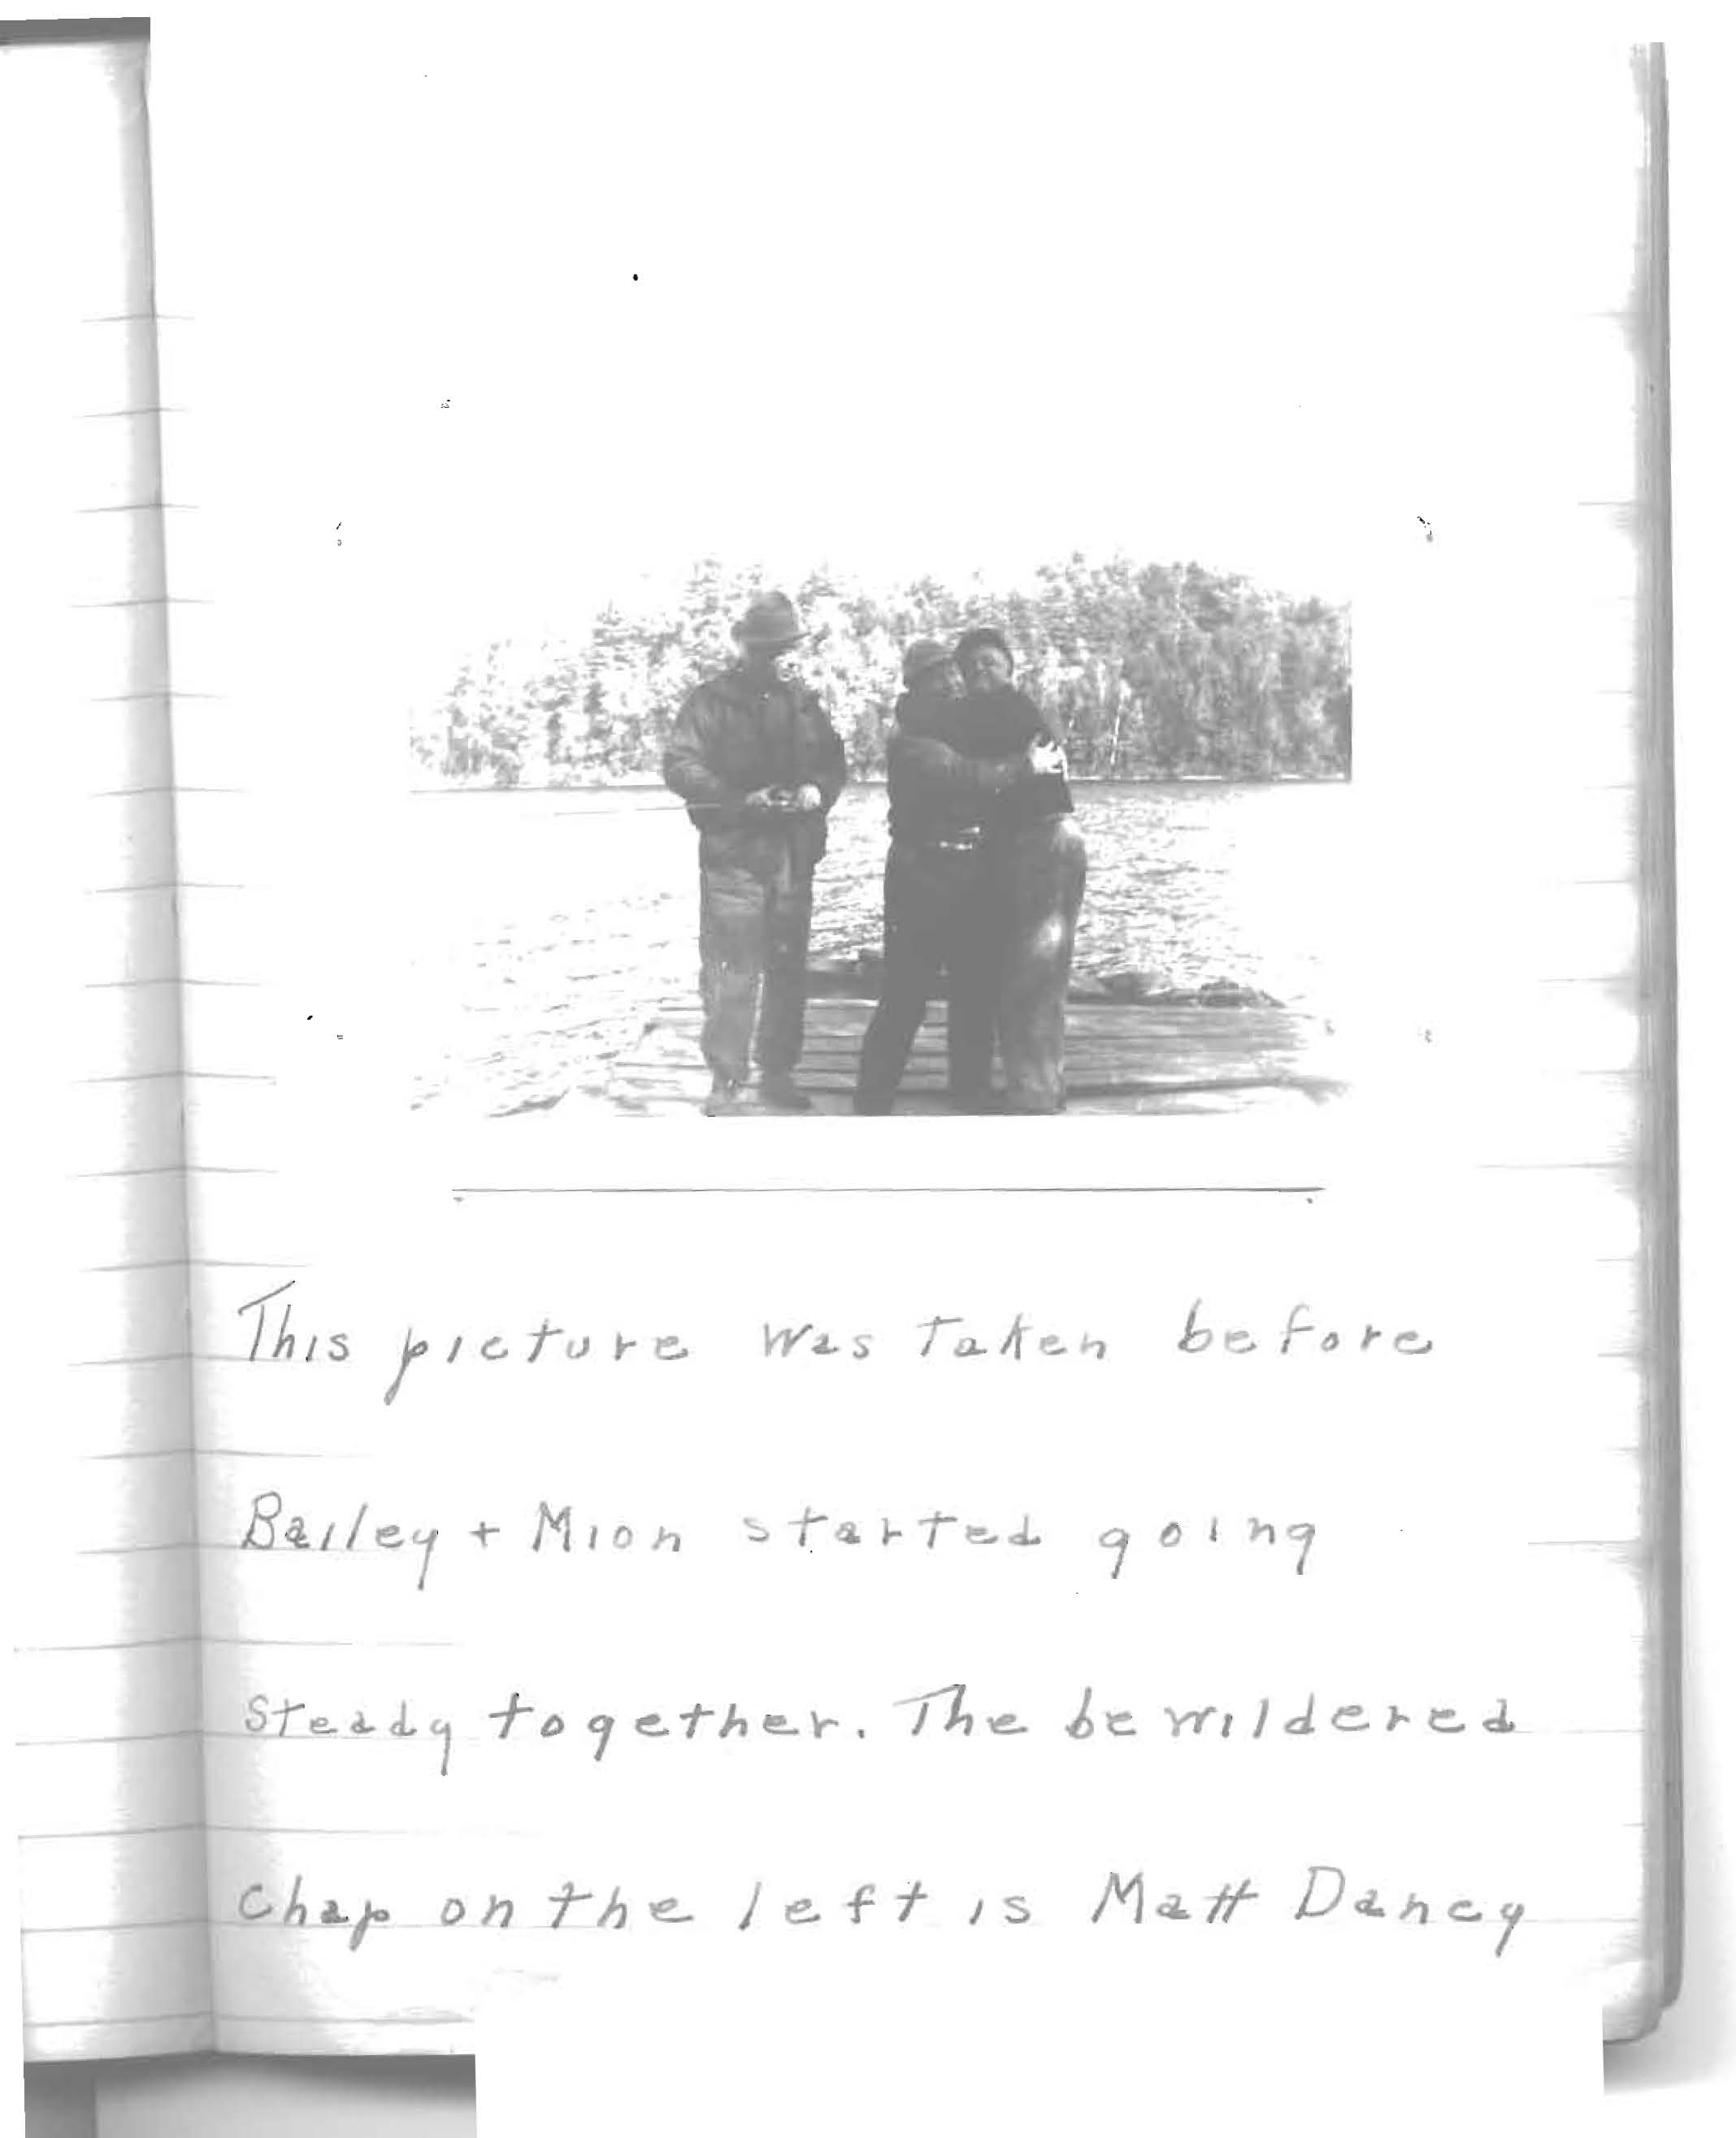 This picture was taken before
Bailey + Mion started going
steady together. The bewildered
chap on the left is Matt Dancy